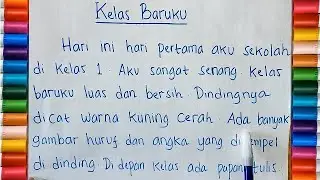 Kelas Baruku
Hari ini hari pertama aku sekolah
di kelas 1. Aku sangat senang. Kelas
baruku luas dan bersih. Dindingnya
di cat warna kuning cerah. Ada banyak
gambar huruf dan angka yang di tempel
di dinding. Di depan kelas ada papan tulis